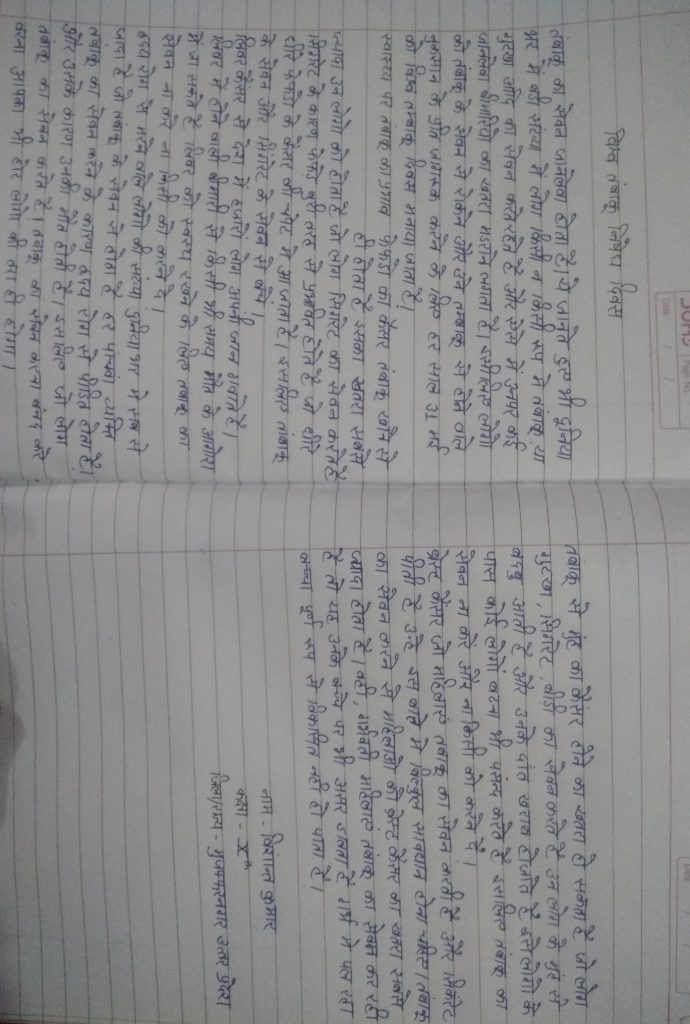 विश्व तंबाकू निषेध दिवस
तंबाकू का सेवन जानलेवा होता है। ये जानते हुए भी दुनिया
भर में बड़ी संख्या में लोग किसी न किसी रूप में तंबाकू या
गुटखा आदि का सेवन करते रहते हैं और ऐसे में उनपर कई
जानलेवा बीमारियों का खतरा मंडराने लगता है। इसीलिए लोगों
को तंबाकू के सेवन से रोकने और उन्हें तम्बाकू से होने वाले
नुकसान के प्रति जागरूक करने के लिए हर साल 31 मई
को विश्व तम्बाकू दिवस मनाया जाता है।
स्वास्थ्य पर तंबाकू का प्रभाव फेफड़ों का कैंसर तंबाकू खाने से
ही होता है इसका खतरा सबसे
ज्यादा उन लोगों को होता है जो लोग सिगरेट का सेवन करते हैं
सिगरेट के कारण फेफड़े बुरी तरह से प्रभावित होते हैं जो धीरे
धीरे फेफड़ों के कैंसर की चपेट में आ जाता है। इसलिए तंबाकू
के सेवन और सिगरेट के सेवन से बचें।
लिवर कैंसर से देश में हजारों लोग अपनी जान गंवाते हैं।
लिवर में होने वाली बीमारी से किसी भी समय मौत के आगोश
में जा सकते हैं लिवर को स्वस्थ रखने के लिए तंबाकू का
सेवन ना करें ना किसी को करने दें।
हृदय रोग से मरने वाले लोगों की संख्या दुनियाभर में सब से
ज्यादा है जो तंबाकू के सेवन से होता है हर पांचवां व्यक्ति
तंबाकू का सेवन करने के कारण हृदय रोग से पीड़ित होता है।
और उसके कारण उनकी मौत होती है। इसलिए जो लोग
तंबाकू का सेवन करते हैं। तंबाकू का सेवन करना बंद करें
वरना आपका भी हाल लोगों की तरह ही होगा।
तंबाकू से मुंह का कैंसर होने का खतरा हो सकता है जो लोग
गुटखा, सिगरेट, बीड़ी का सेवन करते हैं उन लोग के मुंह से
बदबू आती है और उनके दांत खराब हो जाते हैं इससे लोगों के
पास कोई लोगों बैठना भी पसंद करते हैं इसलिए तंबाकू का
सेवन ना करें और ना किसी को करने दें।
ब्रेस्ट कैंसर जो महिलाएं तंबाकू का सेवन करती हैं और सिगरेट
पीती हैं उन्हें इस बारे में बिल्कुल सावधान होना चाहिए। तंबाकू
का सेवन करने से महिलाओं को ब्रेस्ट कैंसर का खतरा सबसे
ज्यादा होता है। वहीं, गर्भवती महिलाएं तंबाकू का सेवन कर रही
हैं तो यह उनके बच्चे पर भी असर डालता है गर्भ में पल रहा
बच्चा पूर्ण रूप से विकसित नहीं हो पाता है।
नाम - विशान्त कुमार
कक्षा - X th
जिला/राज्य - मुजफ्फरनगर उत्तर प्रदेश